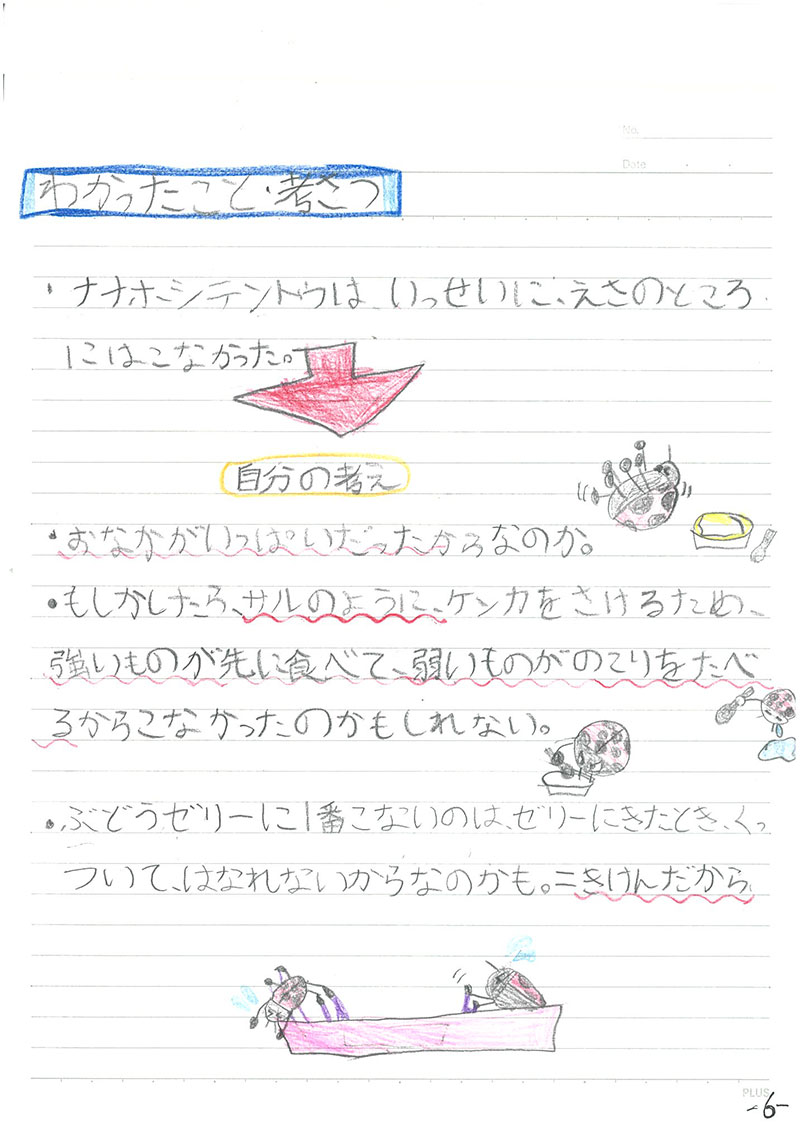 No.
Date
わかったこと・考さつ
・ナナホシテントウは、いっせいに、えさのところ
にはこなかった。
自分の考え
・おなかがいっぱいだったからなのか。
・もしかしたら、サルのように、ケンカをさけるため、
強いものが先に食べて、弱いものがのこりをたべ
るからこなかったのかもしれない。
・ぶどうゼリーに1番こないのは、ゼリーにきたとき、くっ
ついて、はなれないからなのかも。＝きけんだから
PLUS
-6-